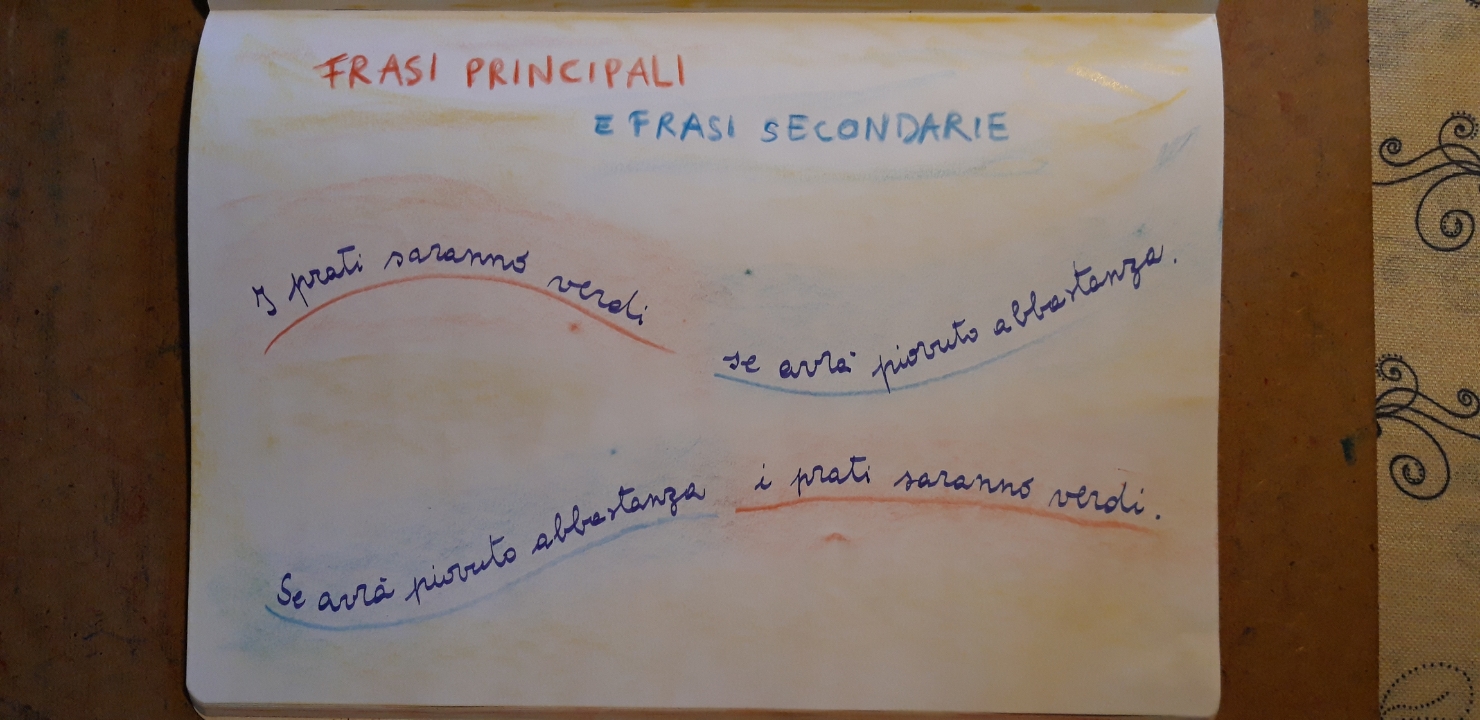 FRASI PRINCIPALI
E FRASI SECONDARIE
I prati saranno verdi
se avrà piovuto abbastanza.
Se avrà piovuto abbastanza
i prati saranno verdi.